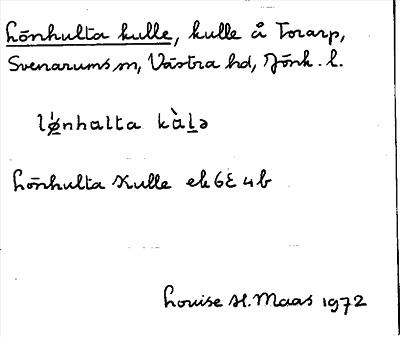 Lönhulta kulle, kulle å Torarp,
Svenarums sn, Västra hd, Jönk. l.
lǿnhalta kàlə
Lönhulta Kulle ek 6E 4b
Louise H. Maas 1972